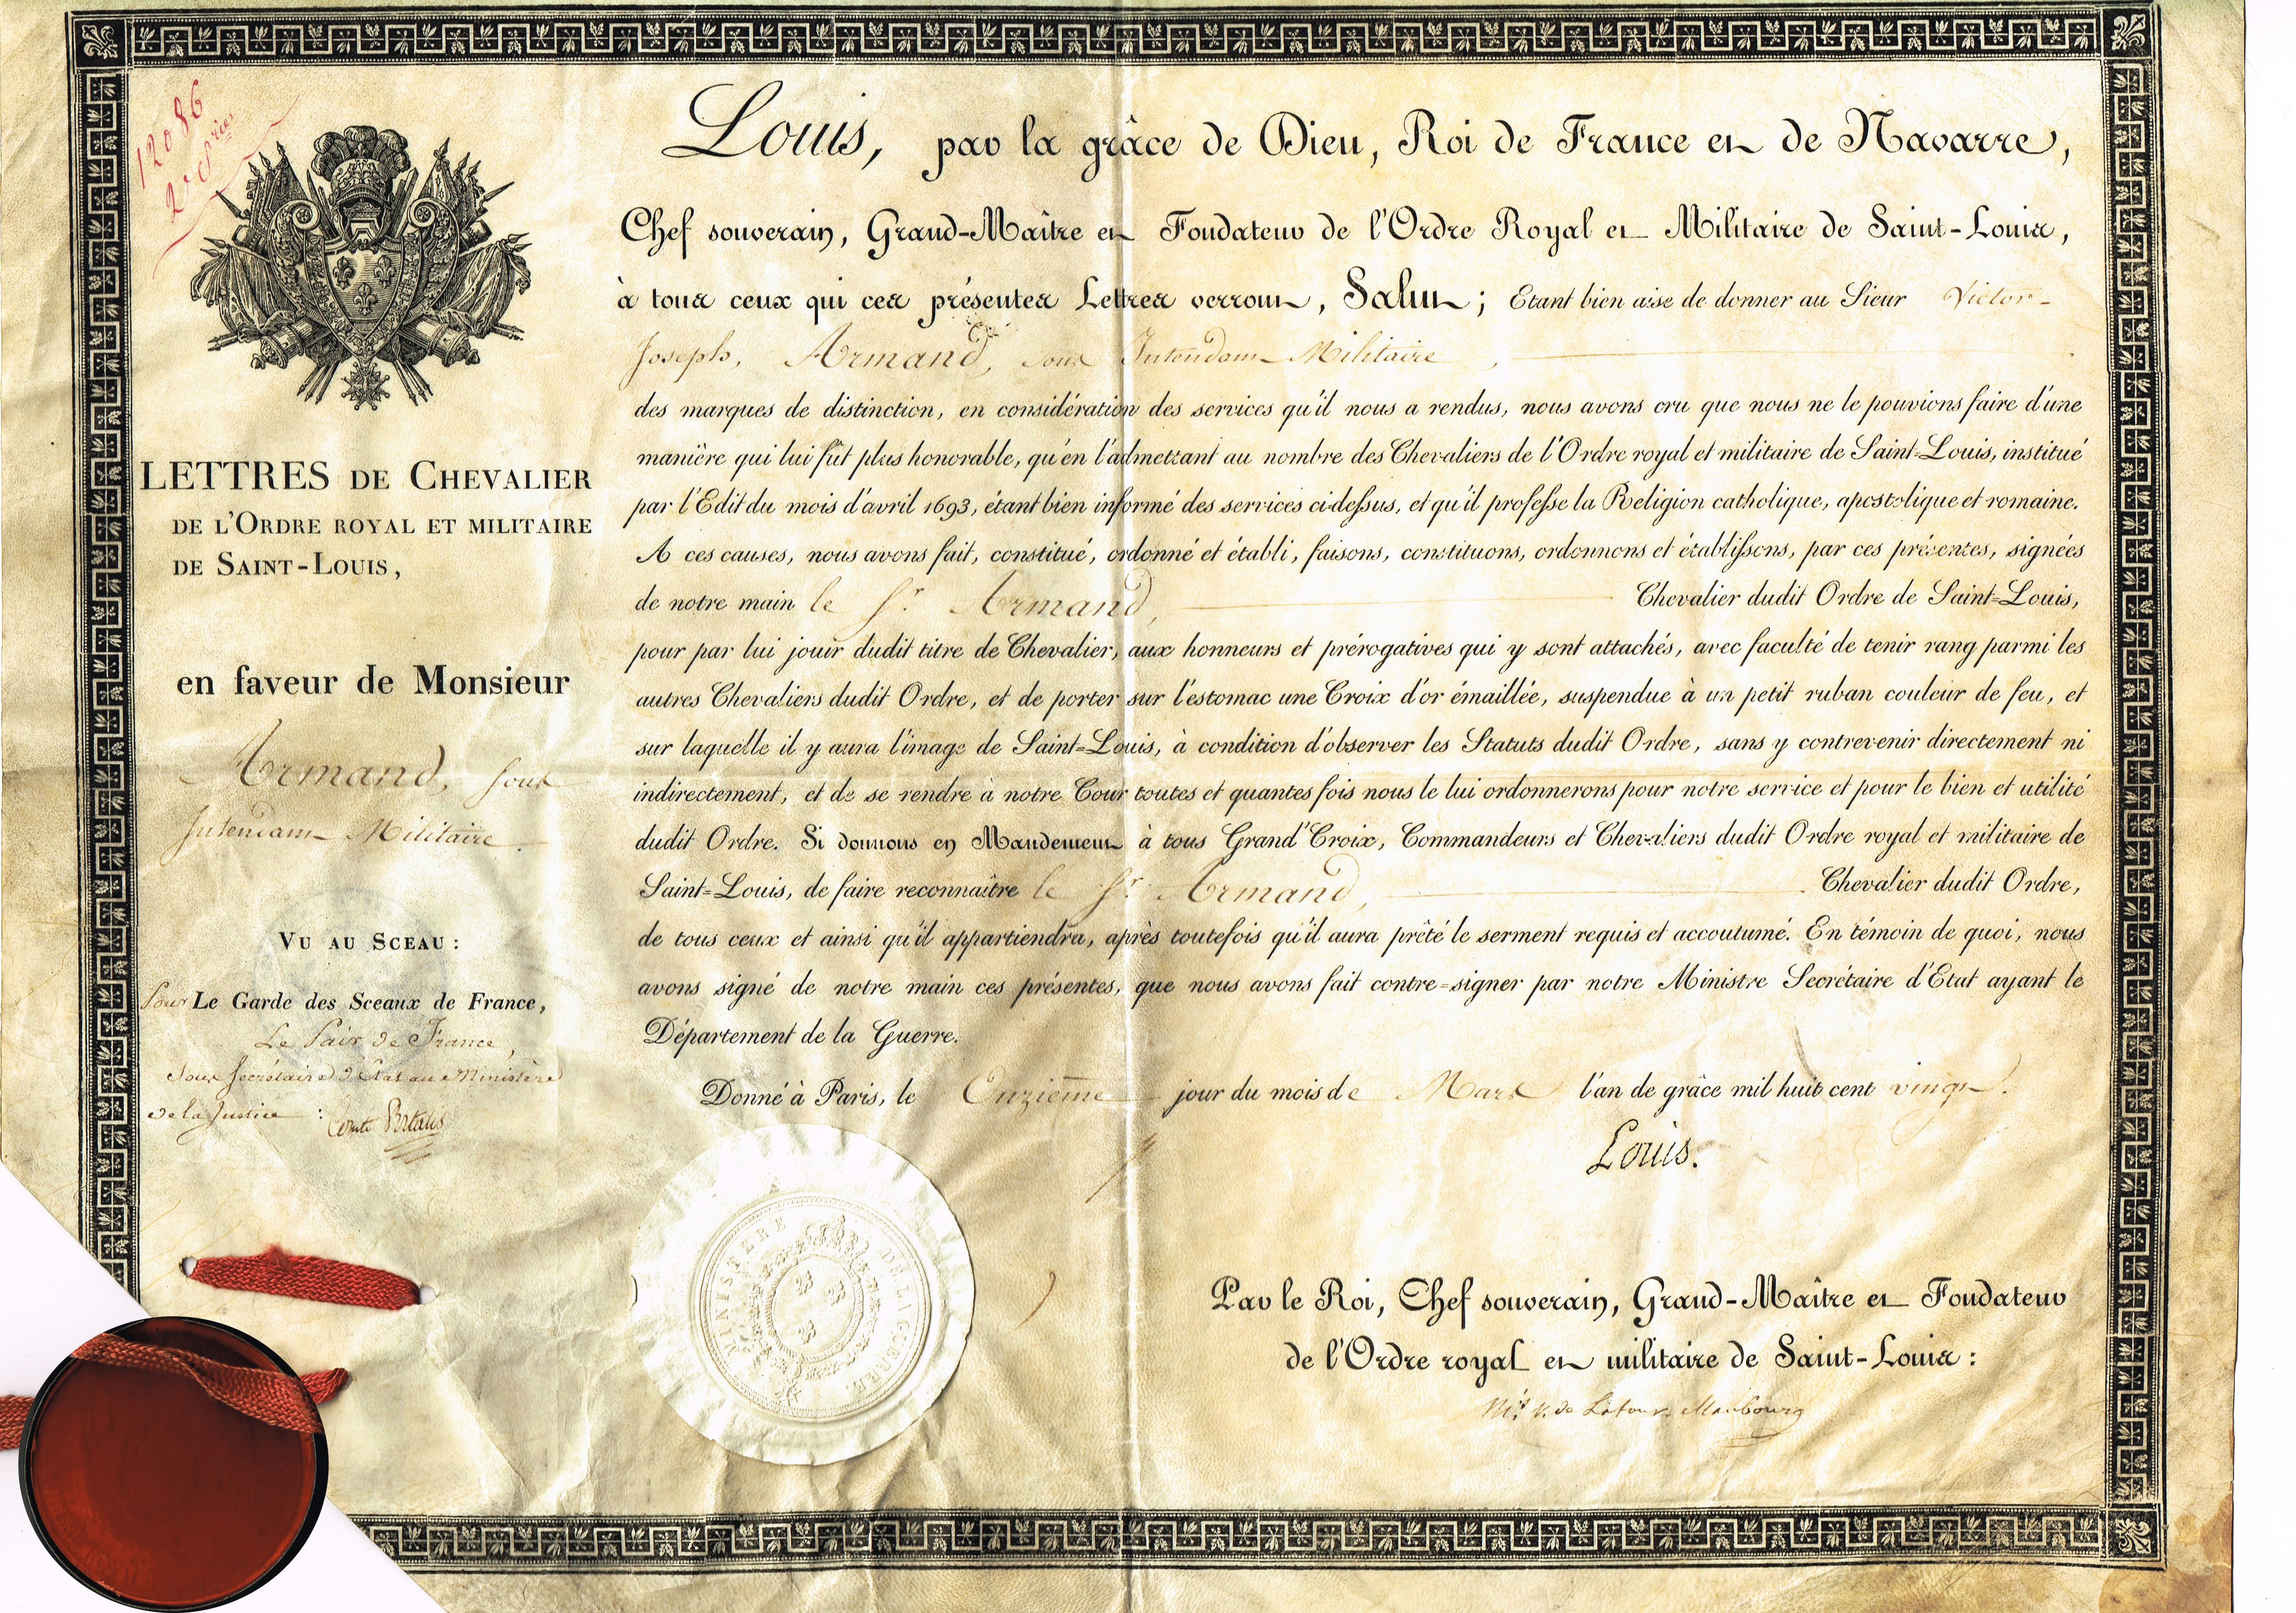 12086
2e Série
LETTRES DE CHEVALIER
DE L'ORDRE ROYAL ET MILITAIRE
DE SAINT-LOUIS,
en faveur de Monsieur
Armand, sous
Intendant Militaire.
VU AU SCEAU :
Pour Le Garde des Sceaux de France,
Le Pair de France,
Sous Secrétaire d'Etat au Ministère
de la Justice : Comte Portalis
Louis, par la grâce de Dieu, Roi de France et de Navarre,
Chef souverain, Grand-Maître et Fondateur de l'Ordre Royal et Militaire de Saint-Louis,
à tous ceux qui ces présentes Lettres verront, Salut ; Etant bien aise de donner au Sieur Victor-
Joseph, Armand, sous Intendant Militaire,
des marques de distinction, en considération des services qu'il nous a rendus, nous avons cru que nous ne le pouvions faire d'une
manière qui lui fût plus honorable, qu'en l'admettant au nombre des Chevaliers de l'Ordre royal et militaire de Saint-Louis, institué
par l'Edit du mois d'avril 1693, étant bien informé des services ci-dessus, et qu'il professe la Religion catholique, apostolique et romaine.
A ces causes, nous avons fait, constitué, ordonné et établi, faisons, constituons, ordonnons et établissons, par ces présentes, signées
de notre main le Sr. Armand, Chevalier dudit Ordre de Saint-Louis,
pour par lui jouir dudit titre de Chevalier, aux honneurs et prérogatives qui y sont attachés, avec faculté de tenir rang parmi les
autres Chevaliers dudit Ordre, et de porter sur l'estomac une Croix d'or émaillée, suspendue à un petit ruban couleur de feu, et
sur laquelle il y aura l'image de Saint-Louis, à condition d'observer les Statuts dudit Ordre, sans y contrevenir directement ni
indirectement, et de se rendre à notre Cour toutes et quantes fois nous le lui ordonnerons pour notre service et pour le bien et utilité
dudit Ordre. Si donnons en Mandement à tous Grand'Croix, Commandeurs et Chevaliers dudit Ordre royal et militaire de
Saint-Louis, de faire reconnaître le Sr. Armand, Chevalier dudit Ordre,
de tous ceux et ainsi qu'il appartiendra, après toutefois qu'il aura prêté le serment requis et accoutumé. En témoin de quoi, nous
avons signé de notre main ces présentes, que nous avons fait contre-signer par notre Ministre Secrétaire d'Etat ayant le
Département de la Guerre.
Donné à Paris, le Onzième jour du mois de Mars l'an de grâce mil huit cent vingt.
Louis.
MINISTERE DE LA GUERRE
Par le Roi, Chef souverain, Grand-Maître et Fondateur
de l'Ordre royal et militaire de Saint-Louis :
Mis. V. de Latour-Maubourg